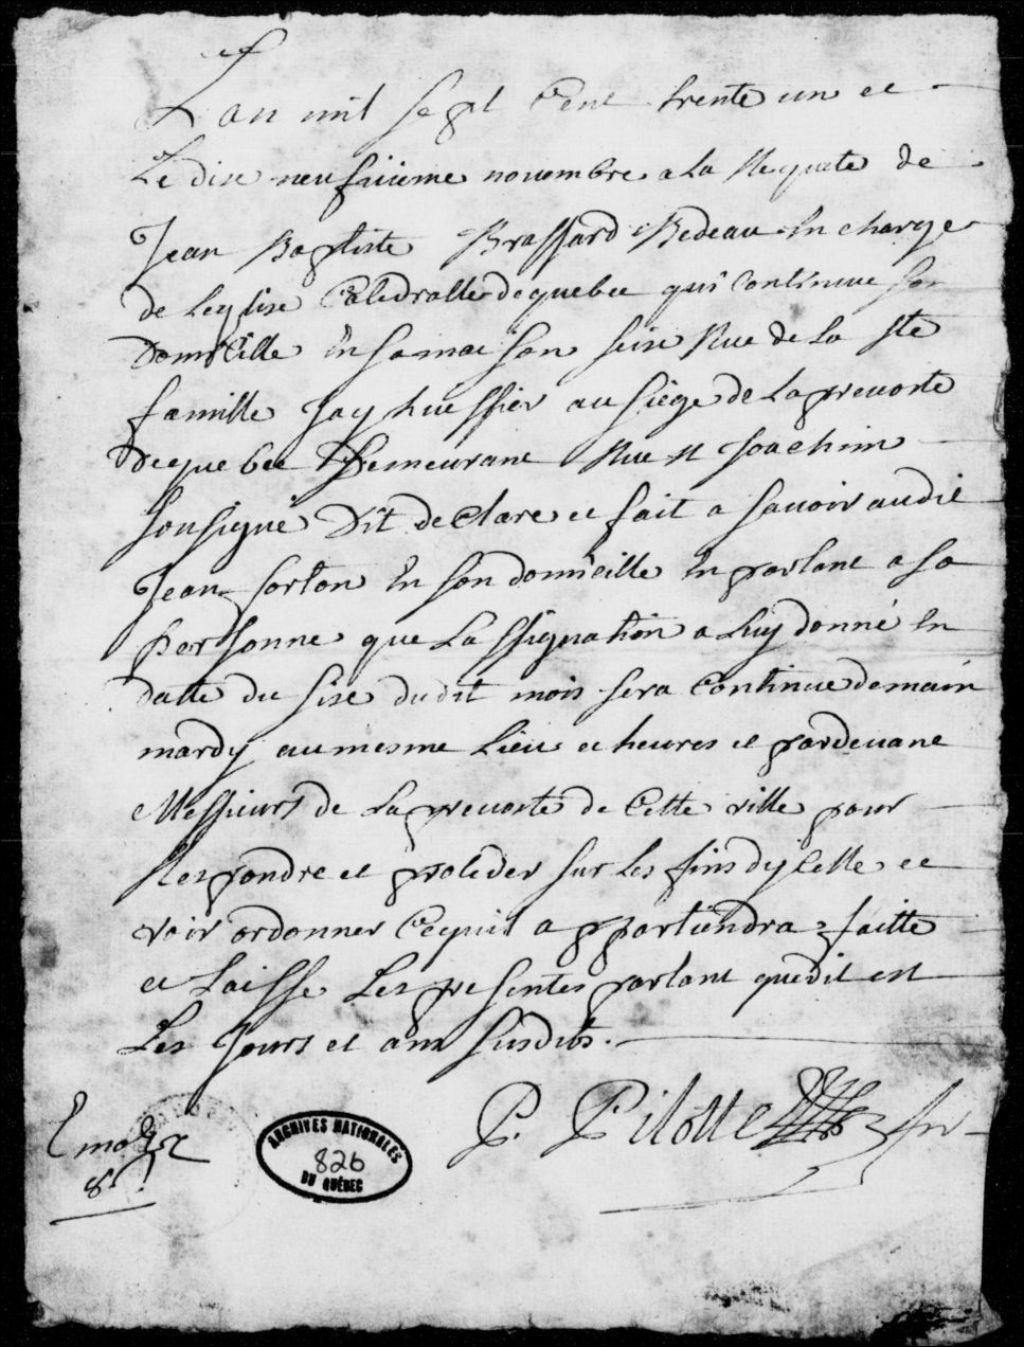 Lan mil sept Cent trente un et
Le dixe neufviieme nouembre a La Requete de
Jean Baptiste Brassard Bedeau En charge
de Leglise Catedralle de quebec qui Continue son
Domicille En sa maison seize Rue de La ste
famille Jay huissier au siege de La preuoste
de quebec Demeurant Rue st Joachim
sousigné Dit declare et fait a sauoir audit
Jean forton En son domicille En parlant a sa
personne que Lassignation a Luy donné En
datte du sixe dudit mois sera Continue demain
mardy au mesme Lieu et heures et pardeuant
Messieurs de La preuosté de Cette ville pour
Respondre et proceder sur Les fins dyCelle et
voir ordonner Cequil appartiendra faitte
et Laisse Les presentes parlant que dit est
Les Jours et ans susdits.
P. Pilotte
8
ARCHIVES NATIONALES
826
DU QUÉBEC